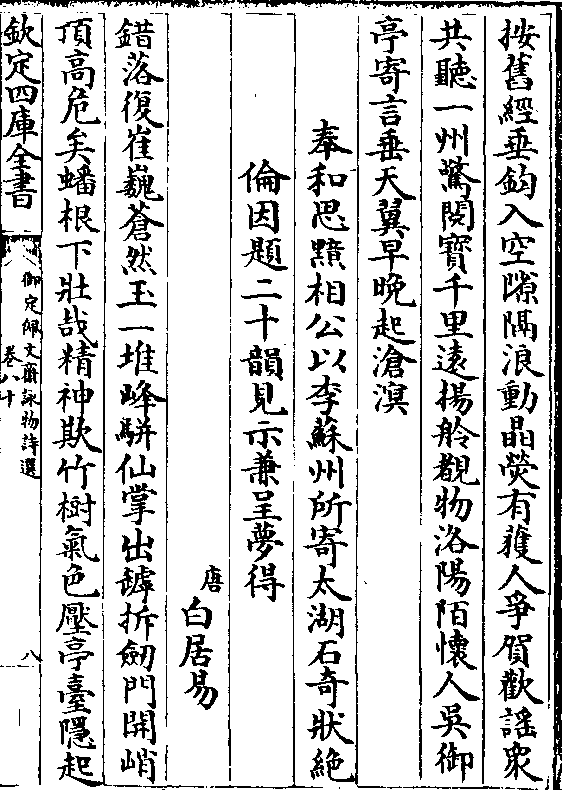 按舊經垂鈞入空隙隔浪動晶熒有獲人爭賀歡謡衆
共聽一州驚閱寶千里遠揚舲覩物洛陽陌懐人吳御
亭寄言垂天翼早晚起滄溟
奉和思黯相公以李蘇州所寄太湖石竒狀絶
倫因題二十韻見示兼呈夢得
唐白居易
錯落復崔巍蒼然玉一堆峰駢仙掌出罅拆劒門開峭
頂髙危矣蟠根下壯哉精神欺竹樹氣色壓亭臺隠起
欽定四庫全書
御定佩文齋詠物詩選
卷八十
八